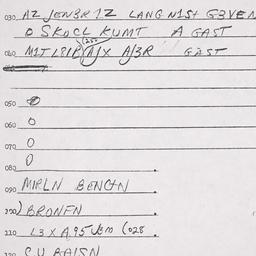 030 AZ JEN3R 1Z LANG N1St G3VEN
O SKOCL KUMT A GAST
060 M1T A/X A/3R GAST
050
060 O
070 O
080 O
090 MIRLN BENGTN
100) BRONFN
110 L3 X A.95 (028 .
120 CU BAISN